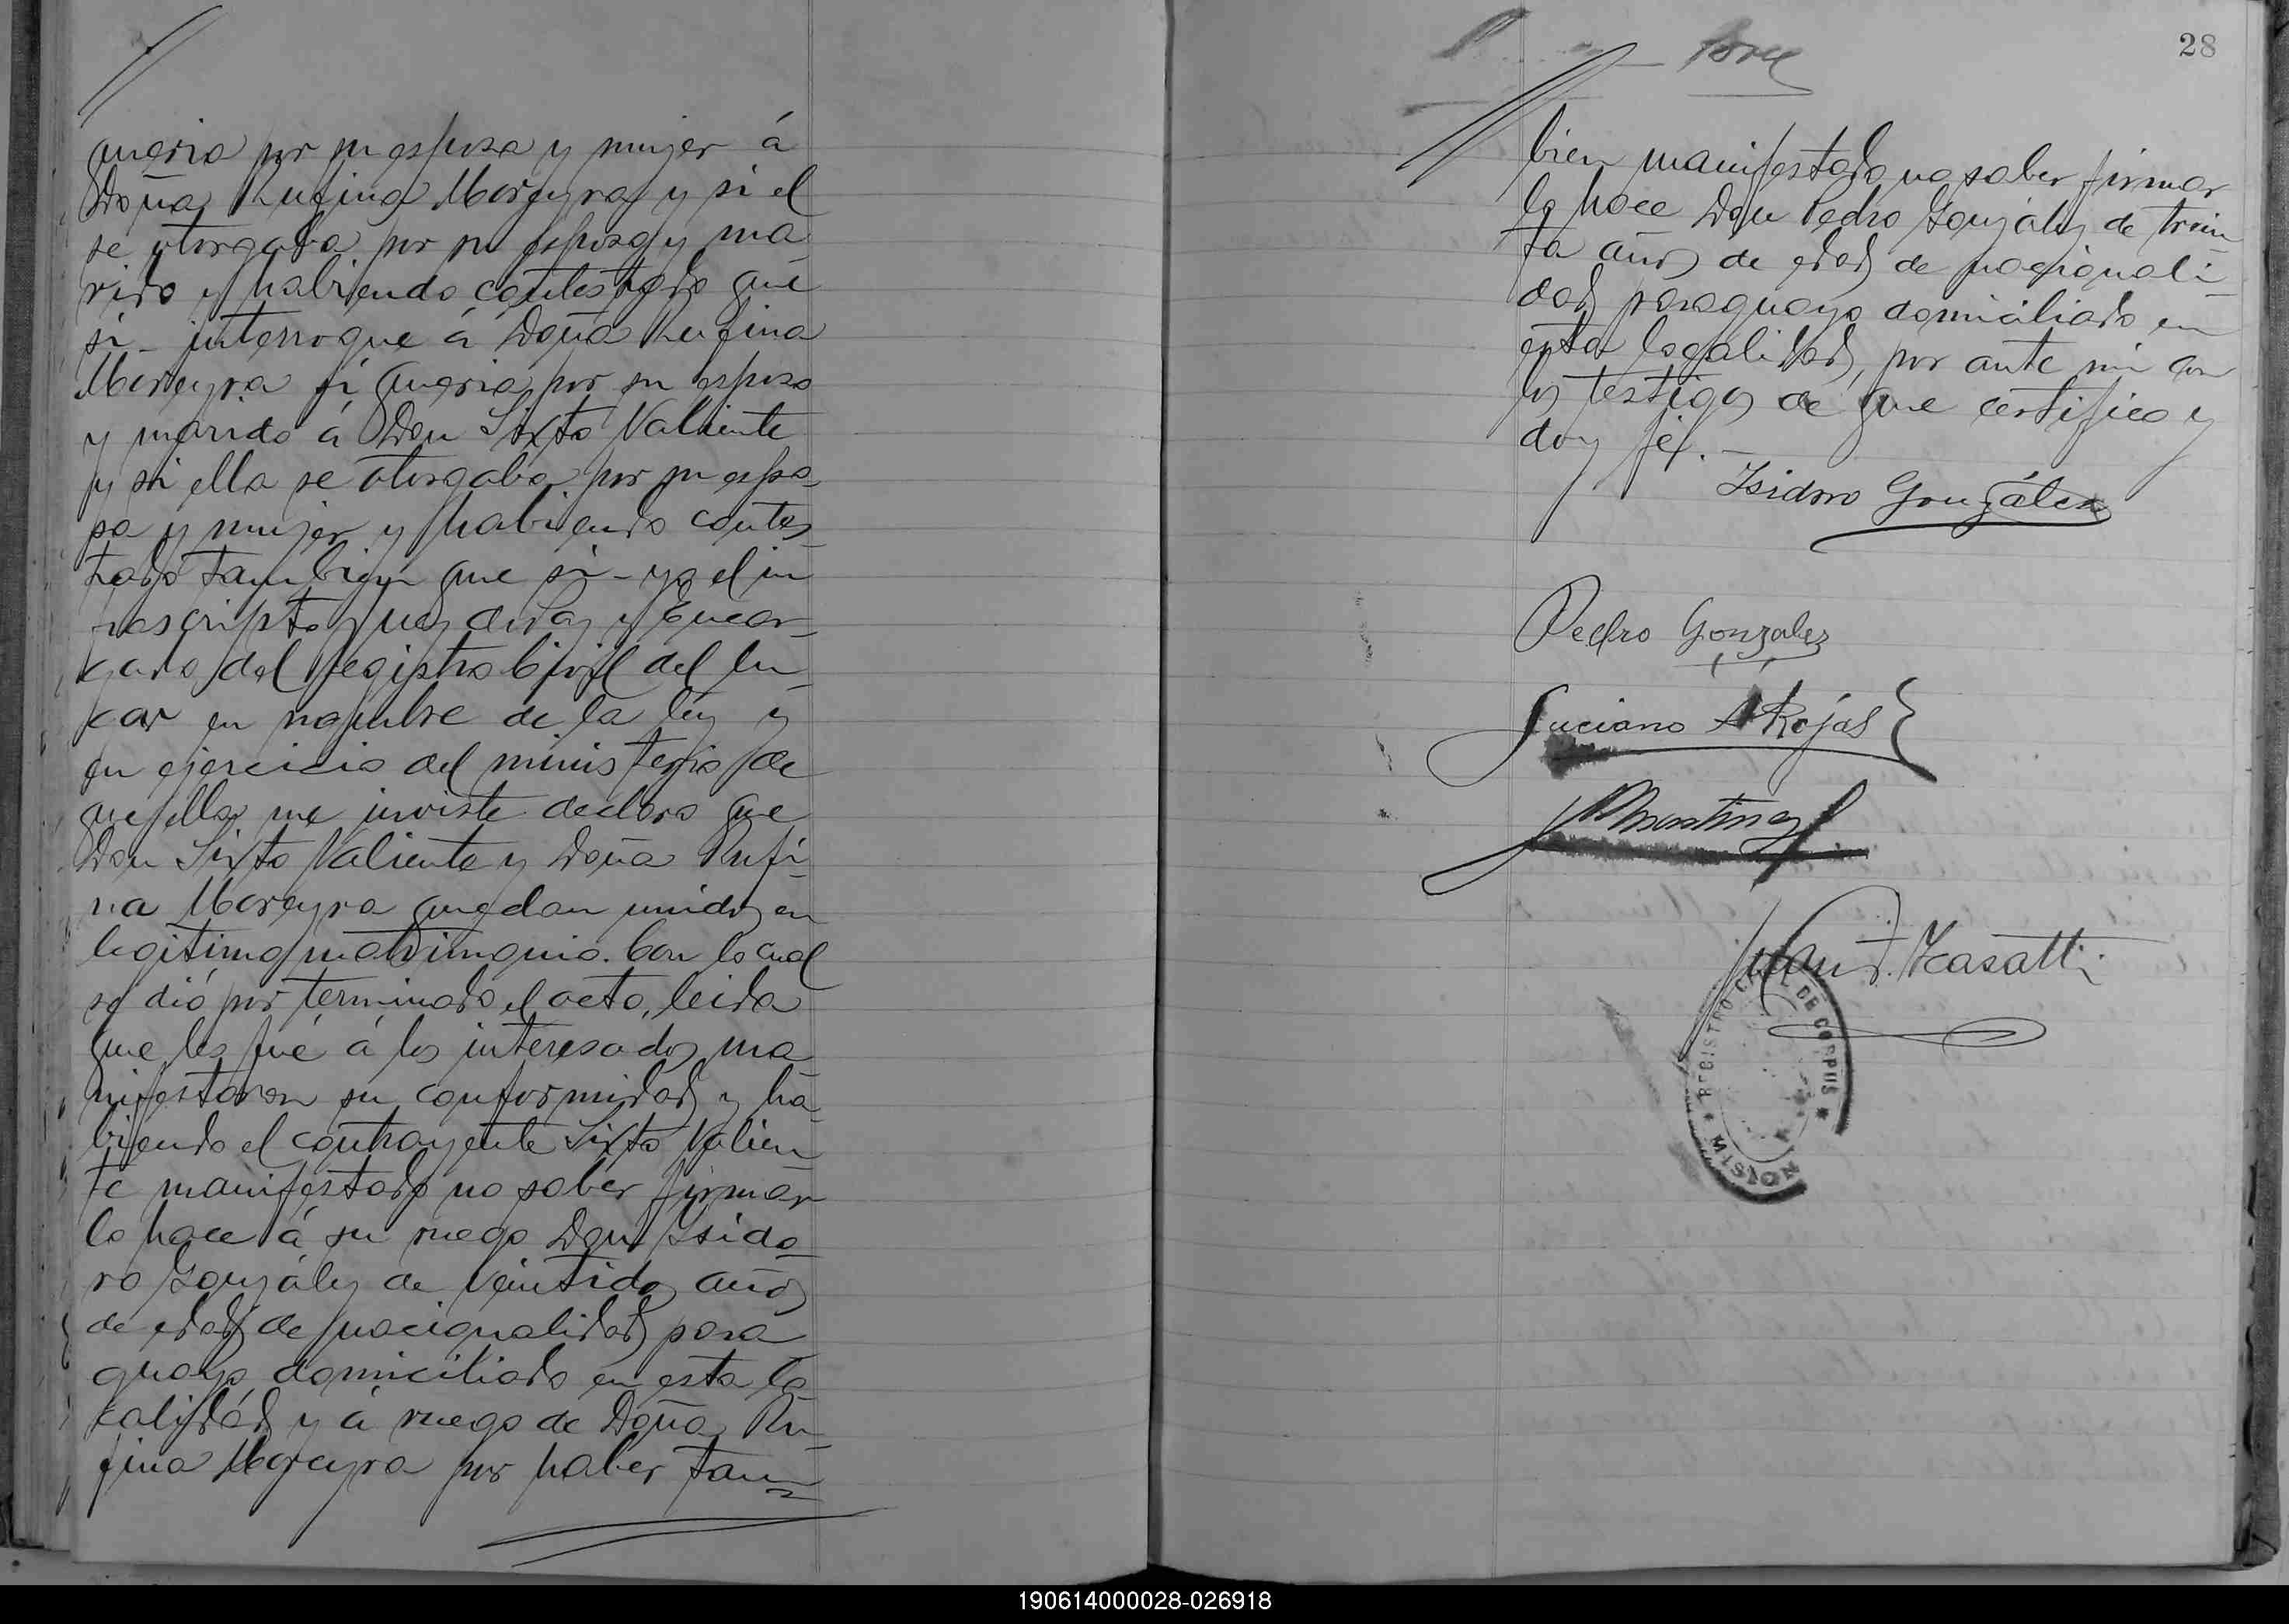 queria por su esposa y mujer á
Doña Rufina Moreyra y si el
se otorgaba por su esposo y ma
rido y habiendo contestado que
si - interroque á Doña Rufina
Moreyra si queria por su esposo
y marido á Don Sixto Valiente
y si ella se otorgaba por su espo-
sa y mujer y habiendo contes-
tado tambien que si - yo el in
frascripto Juez de Paz y Encar-
gado del Registro Civil del lu-
gar en nombre de la ley y
en ejercicio del ministerio de
que ella me inviste declaro que
Don Sixto Valiente y Doña Rufi-
na Moreyra quedan unidos en
legitimo matrimonio. Con lo cual
se dió por terminado el acto, leida
que les fué á los interesados ma-
nifestaron su conformidad y ha-
biendo el contrayente Sixto Valien-
te manifestado no saber firmar
lo hace á su ruego Don Isido-
ro González de veintidos años
de edad de nacionalidad para-
guaya domiciliado en esta lo-
calidád y á ruego de Doña Ru-
fina Moreyra por haber tam-
28
bien manifestado no saber firmar
lo hace Don Pedro González de trein
ta años de edad de nacionali-
dad paraguaya domiciliado en
esta localidad, por ante mi con
los testigos de que certifico y
doy fé. -
Isidoro González
Pedro Gonzalez
Luciano A Rojas
Martinez
Juan F. Kasatti
REGISTRO CIVIL DE CORPUS
MISION
190614000028-026918